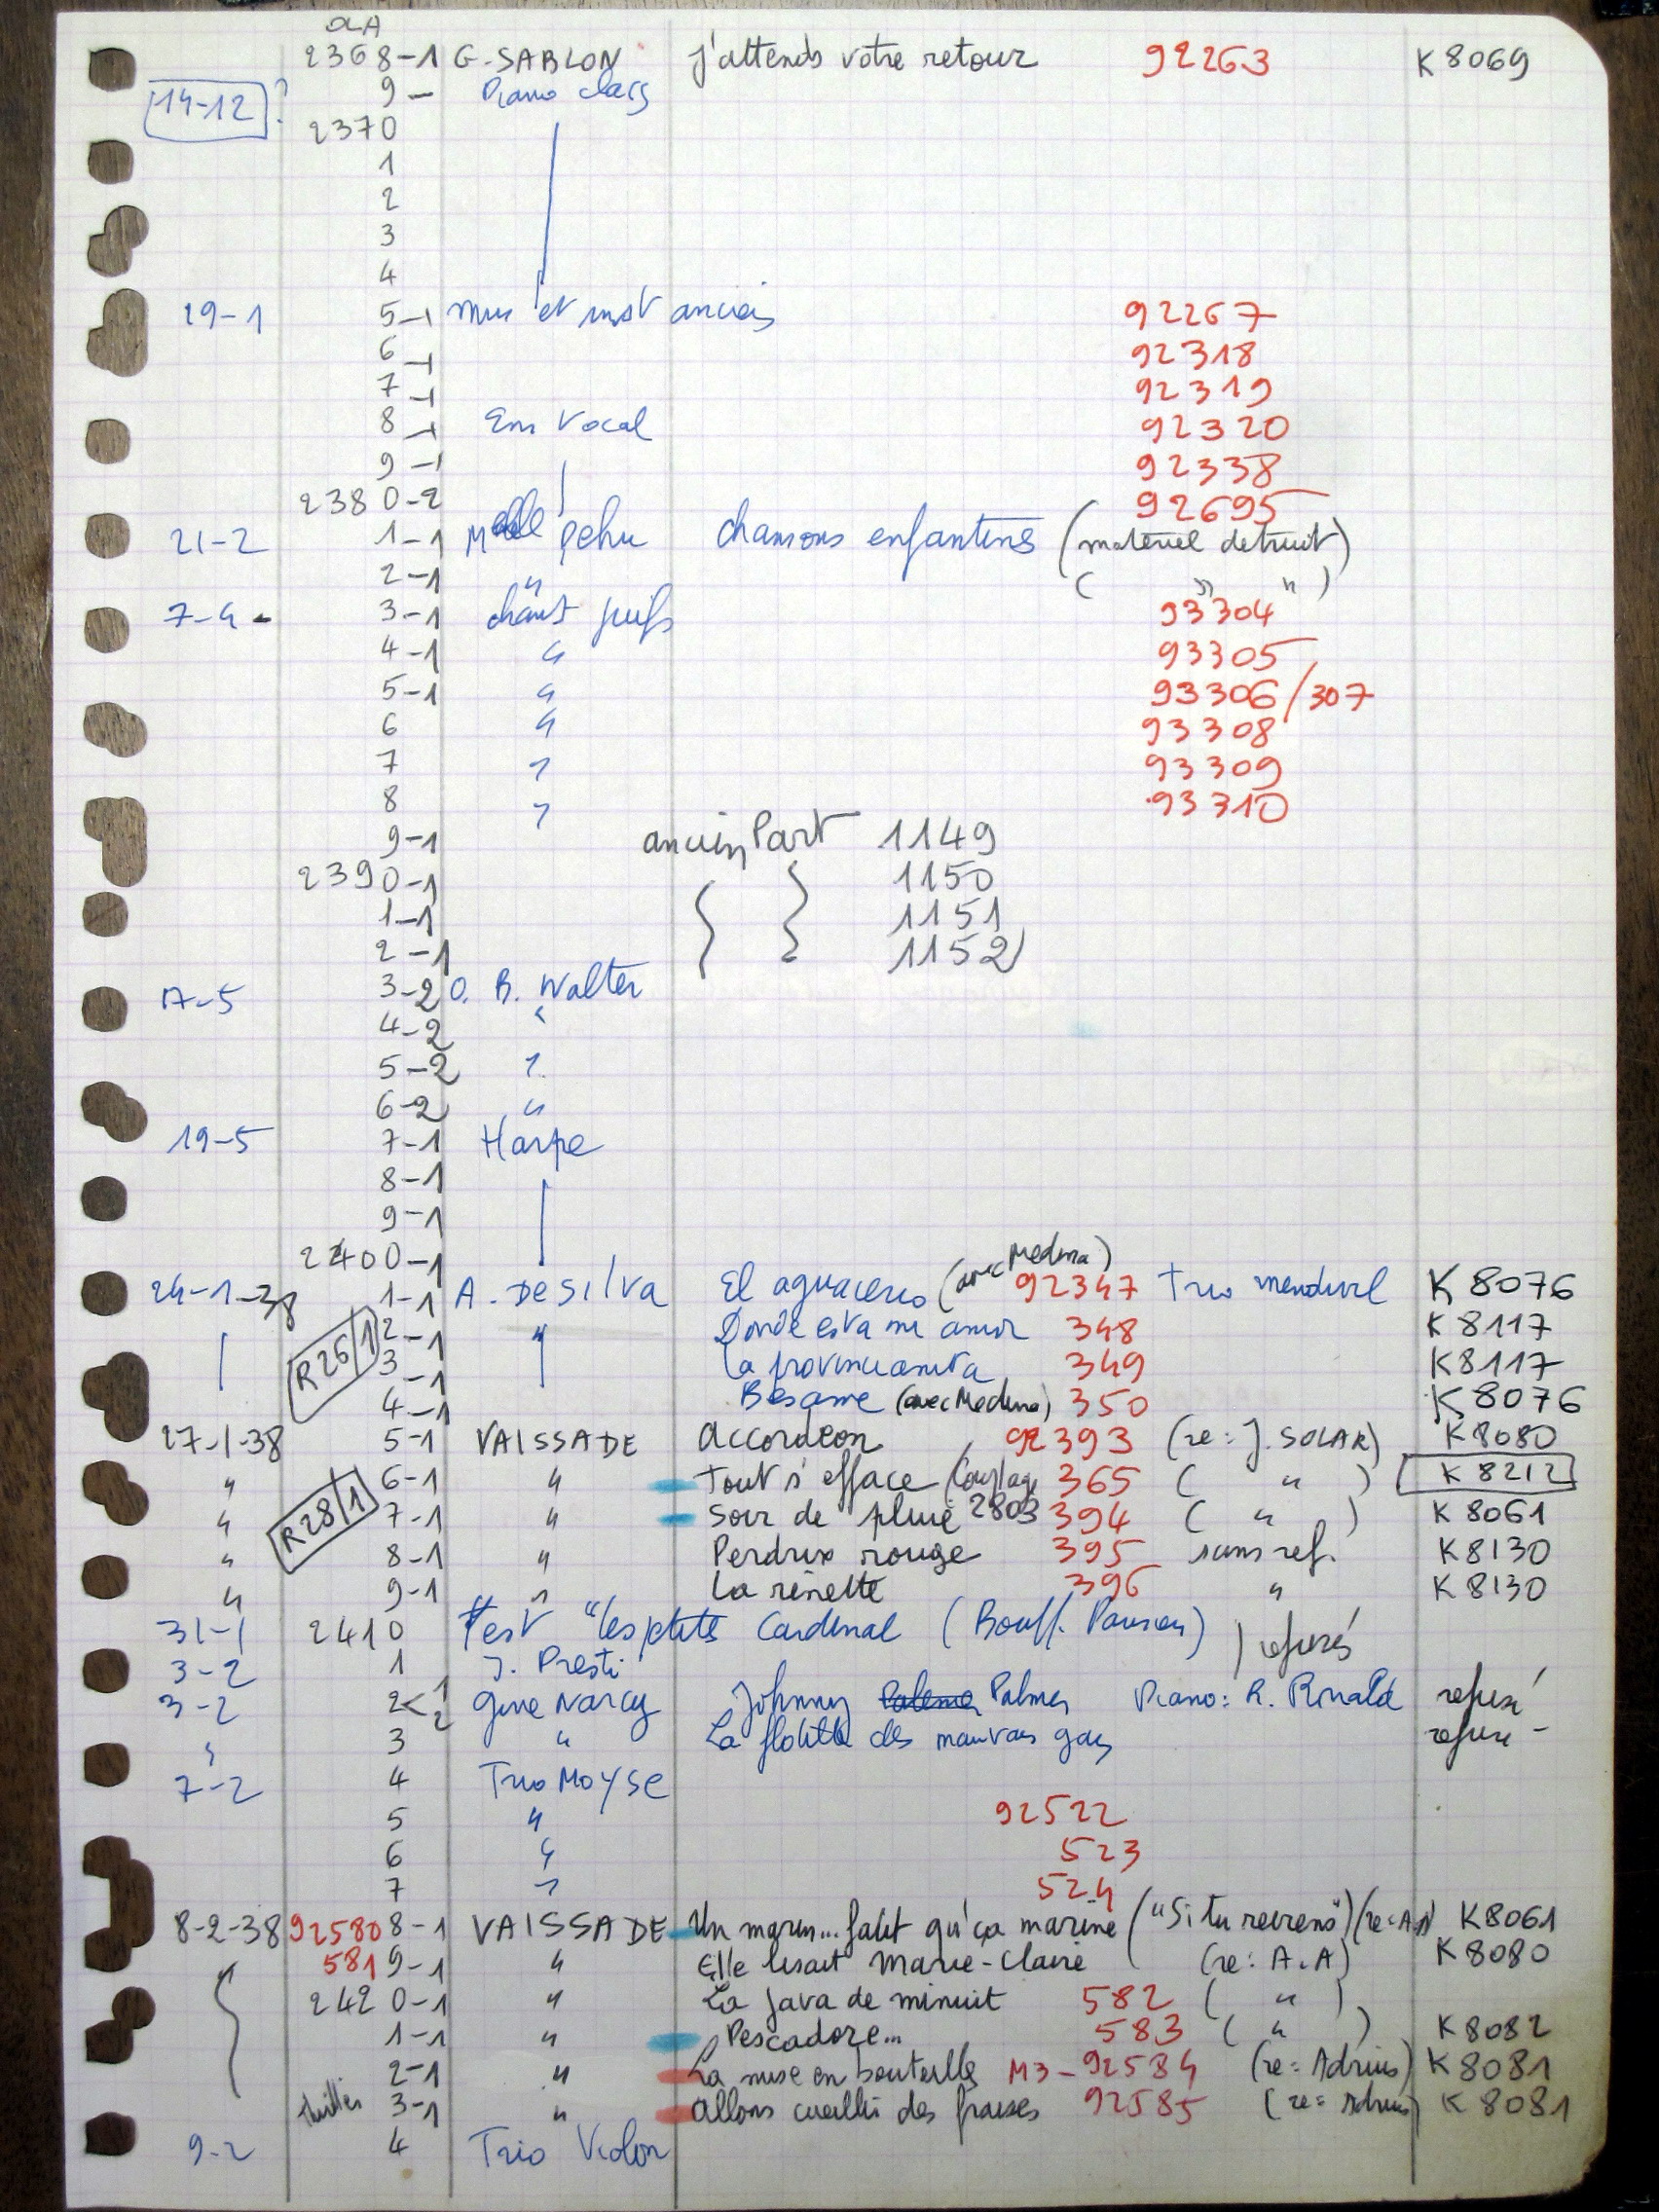 OLA
2368-1 G. SABLON j'attends votre retour 92263 K 8069
14-12 ? 9 - Piano class
2370
1
2
3
4
19-1 5-1 Mus et inst anciens 92267
6-1 92318
7-1 92319
8-1 Ens Vocal 92320
9-1 92338
2380-2 92695
21-2 1-1 Melle Pehu chansons enfantines (materiel detruit)
2-1 " ( " " )
7-4- 3-1 chant juifs 93304
4-1 " 93305
5-1 " 93306/307
6 " 93308
7 " 93309
8 " 93310
9-1 ancien Part 1149
2390-1 1150
1-1 1151
2-1 1152
17-5 3-2 O. B. Walter
4-2 "
5-2 "
6-2 "
19-5 7-1 Harpe
8-1
9-1
2400-1
24-1-38 1-1 A. De Silva El aguacero (avec Medina) 92347 Trio mendivil K 8076
R26/1 2-1 " Donde esta mi amor 348 K 8117
3-1 La provincianita 349 K8117
4-1 Besame (avec Medina) 350 K 8076
27-1-38 5-1 VAISSADE Accordeon 92393 (re: J. SOLAR) K 8080
" 6-1 " Tout s'efface (Couplage 365 ( " ) K 8212
" R28/1 7-1 " Soir de pluie 2803 394 ( " ) K 8061
" 8-1 " Perdrix rouge 395 sans ref. K 8130
" 9-1 " La reinette 396 " K 8130
31-1 2410 Test "les ptits Cardinal (Bouff. Parisien) ) refusés
3-2 1 J. Presti
3-2 2<1 2 Gine Narcy Johnny Palmer Piano: R. Rinald refusé
" 3 " La flotille des mauvais gars refusé -
7-2 4 Trio Moyse
5 " 92522
6 " 523
7 " 524
8-2-38 92580 8-1 VAISSADE Un marin... fallt qu'ça marine ("Si tu reviens") (re: A.A) K8061
581 9-1 " Elle lisait Marie-Claire (re: A.A) K 8080
2420-1 " La java de minuit 582 ( " )
1-1 " Pescadore... 583 ( " ) K 8082
2-1 " La mise en bouteille M3-92584 (re: Adrius) K 8081
3-1 " Allons cueillir des fraises 92585 (re: Adrius) K 8081
9-2 4 Trio Violon